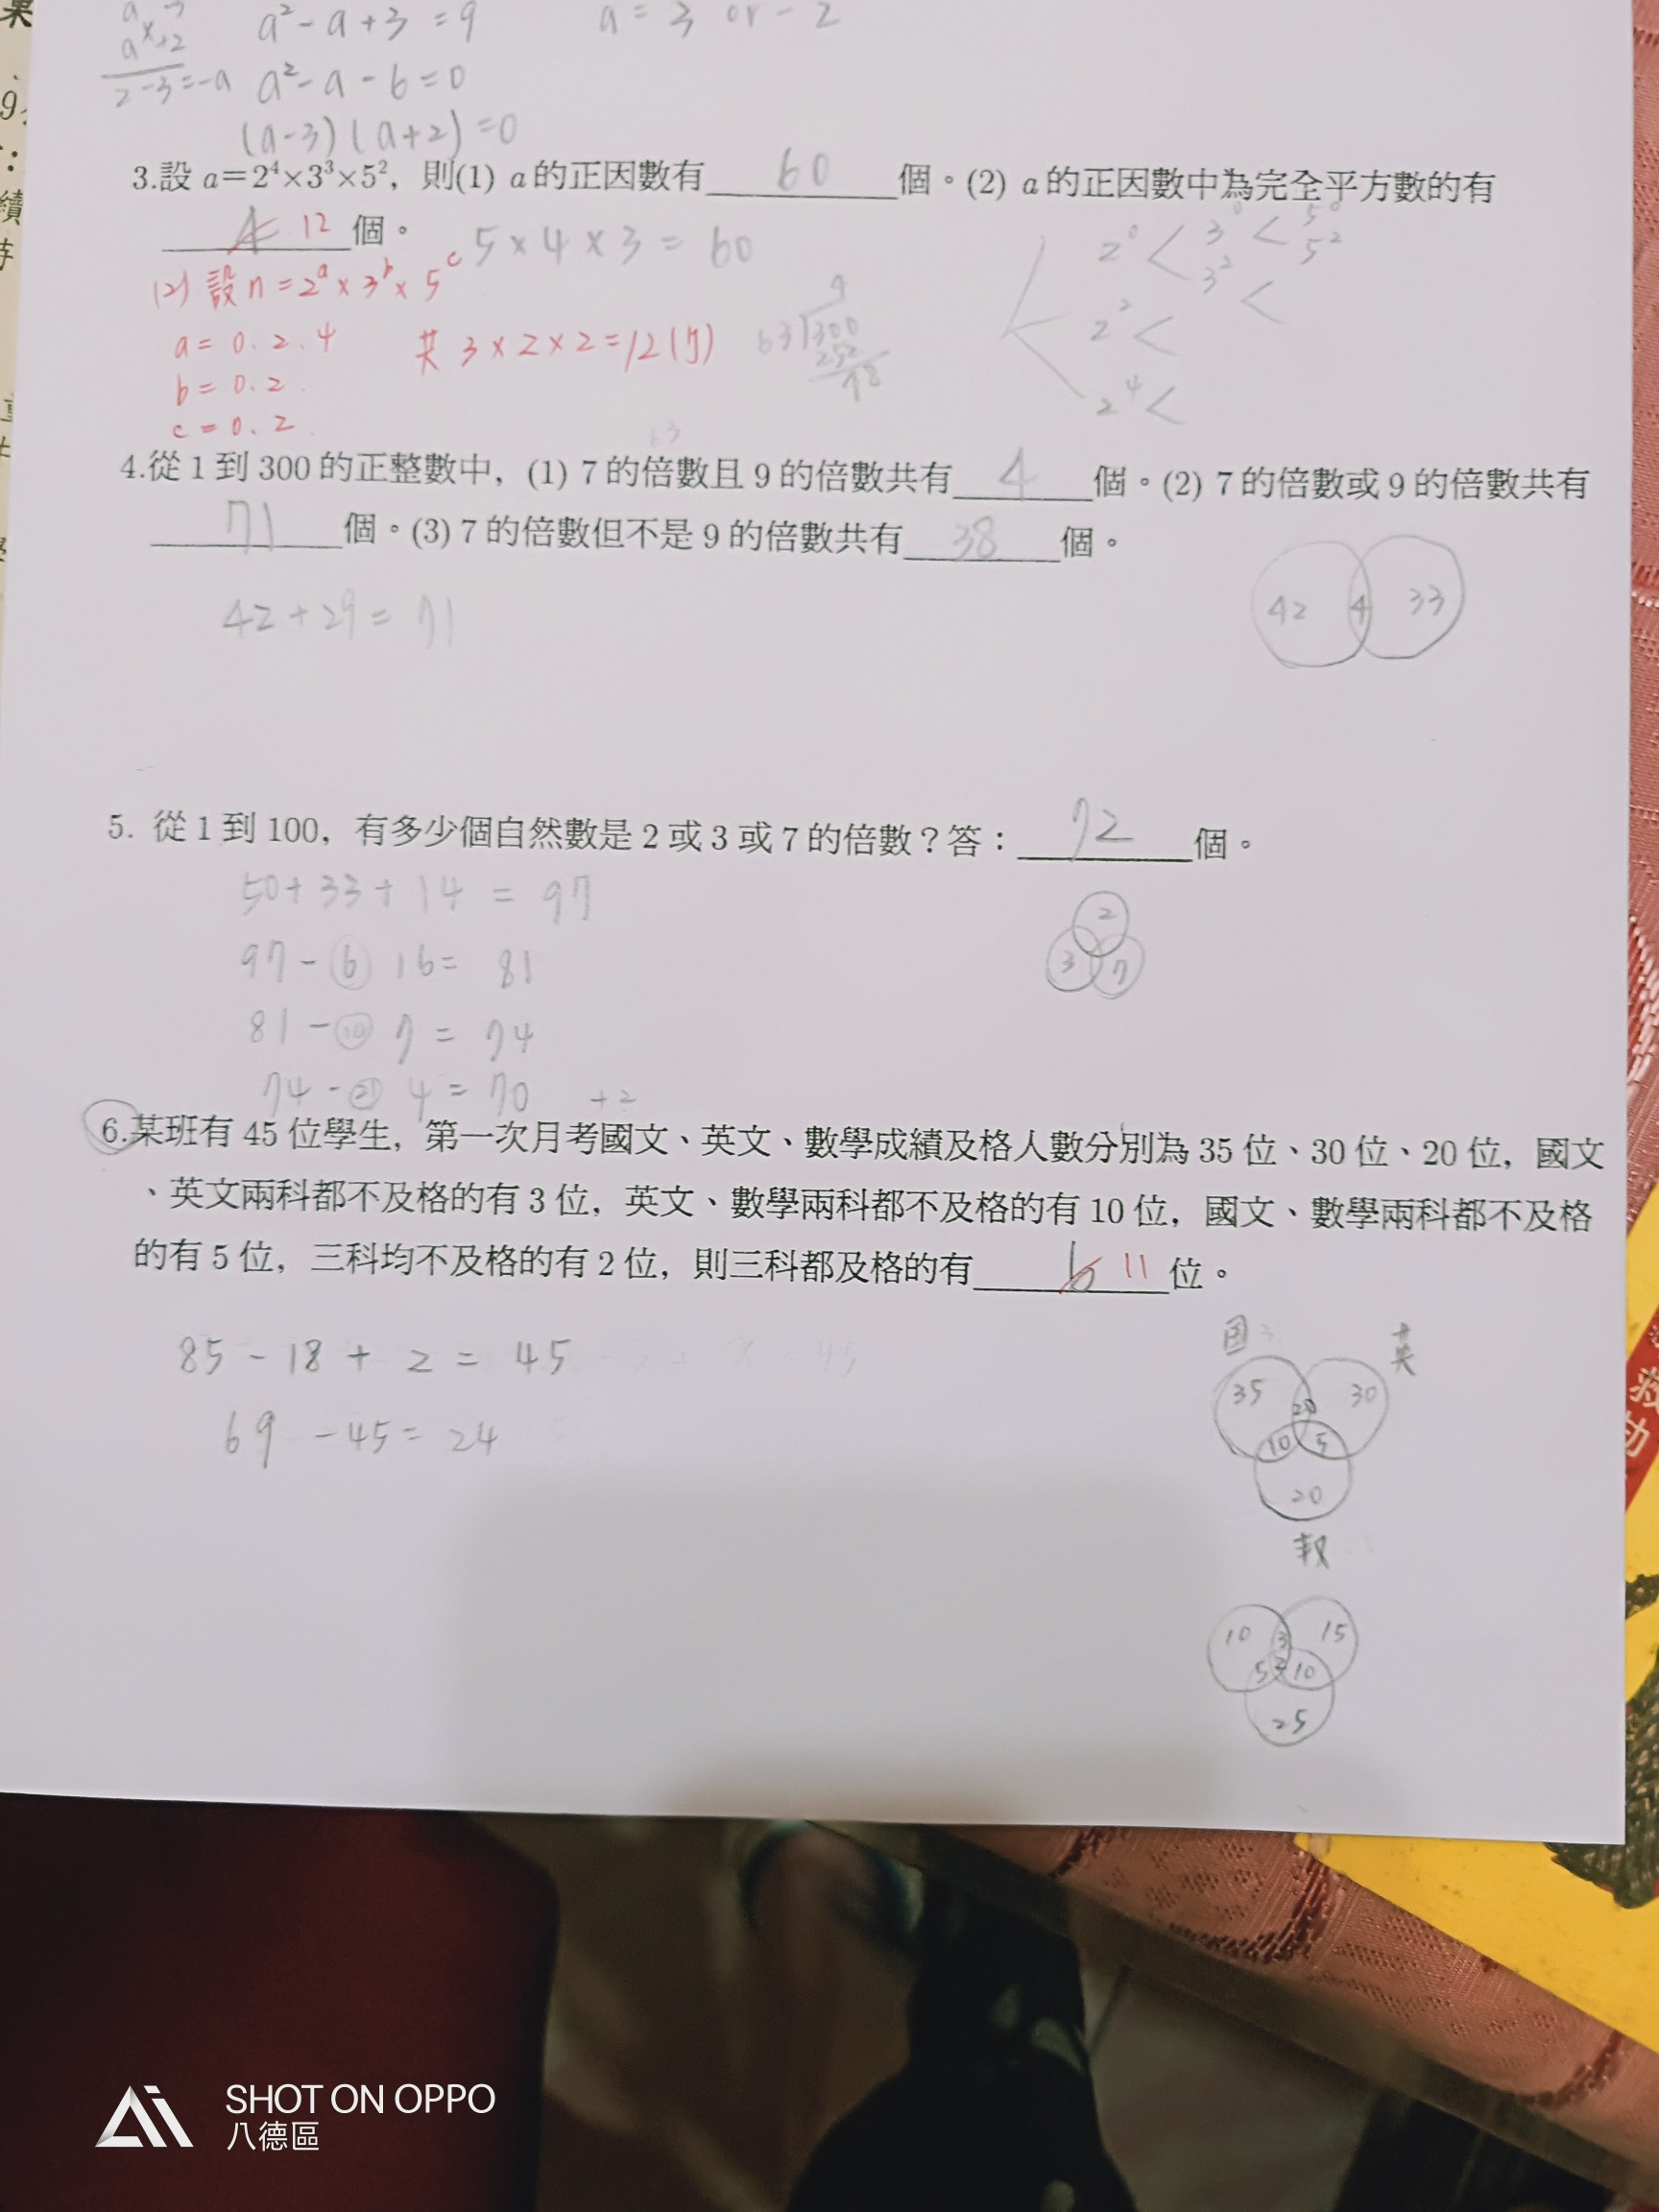 a²-a+3=9
a=3 or -2
2-3=-a
a²-a-6=0
(a-3)(a+2)=0
3.設 a=2⁴×3³×5²，則(1) a的正因數有 60 個。(2) a的正因數中為完全平方數的有
12 個。
5×4×3=60
2⁰<3⁰<5⁰
5²
3²<
(2) 設n=2ᵃ×3ᵇ×5ᶜ
a=0.2.4
共 3×2×2=12(個)
b=0.2
c=0.2
63 300
252
48
2²<
2⁴<
63
4.從1到300的正整數中，(1) 7的倍數且9的倍數共有 4 個。(2) 7的倍數或9的倍數共有
71 個。(3) 7的倍數但不是9的倍數共有 38 個。
42+29=71
42 4 33
5. 從1到100，有多少個自然數是2或3或7的倍數？答：72 個。
50+33+14=97
97-⑥ 16=81
81-⑭ 7=74
74-㉑ 4=70 +2
2
3 7
6.某班有45位學生，第一次月考國文、英文、數學成績及格人數分別為35位、30位、20位，國文
、英文兩科都不及格的有3位，英文、數學兩科都不及格的有10位，國文、數學兩科都不及格
的有5位，三科均不及格的有2位，則三科都及格的有 6 11 位。
85-18+2=45
69-45=24
國 英
35 30
10 5
20
數
10 3 15
5 2 10
25
SHOT ON OPPO
八德區